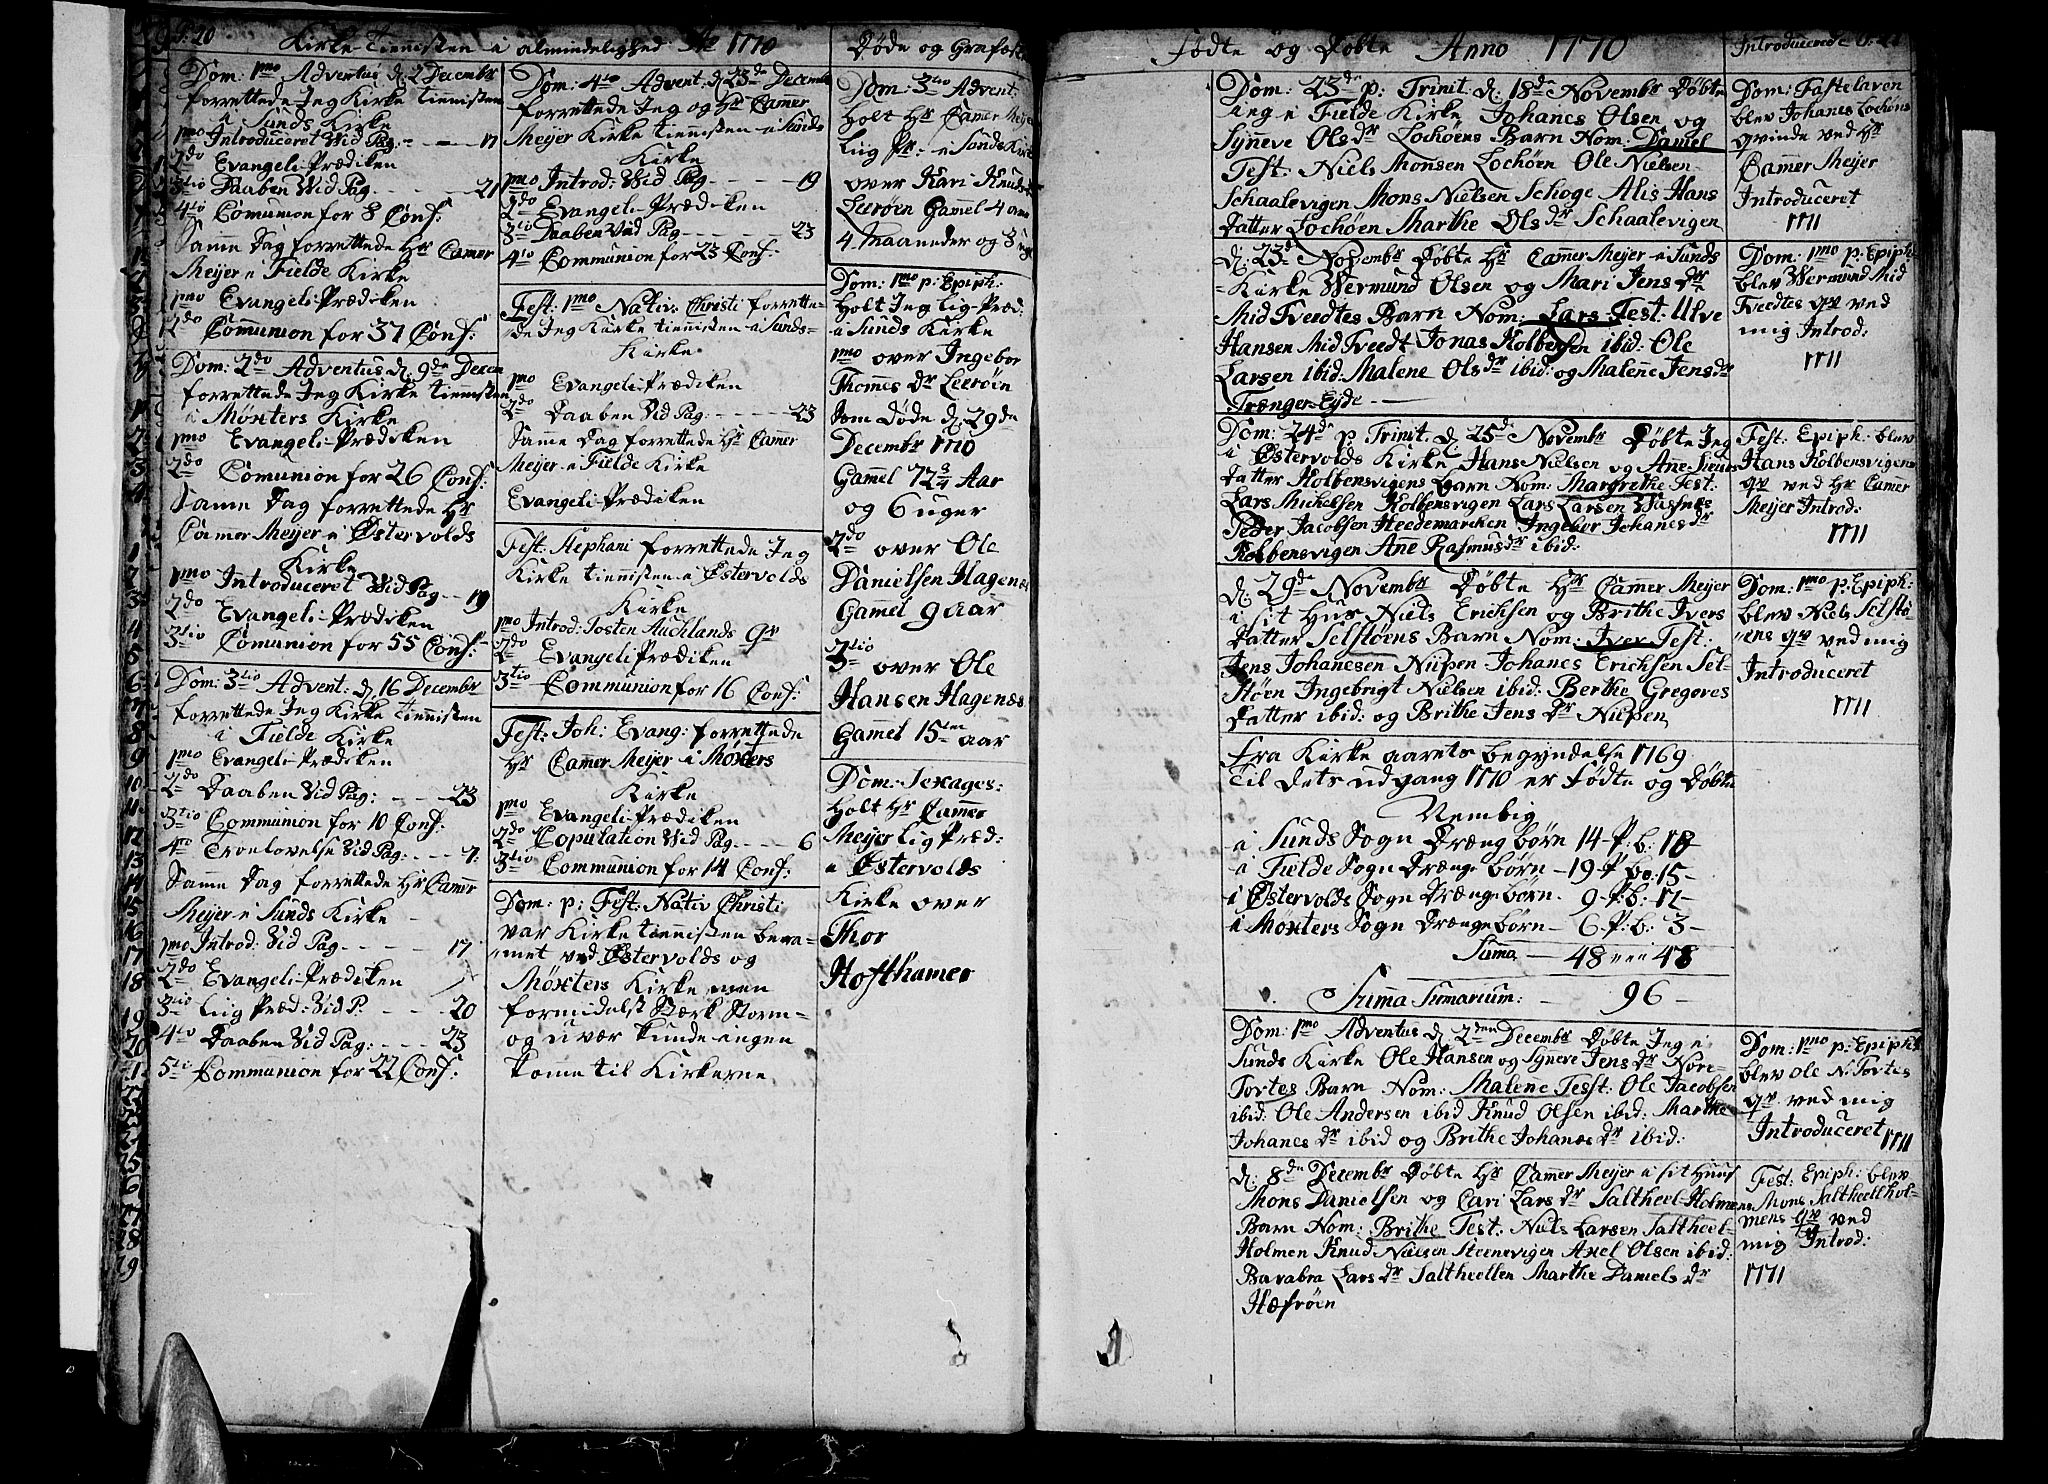 P: 20
Kirke tiennisten i almindelighed Ao 1770
Dom: 1mo Adventus d. 2 Decembr
forrettede Jeg Kirke tiennisten
i Sunds Kirke
1mo Introduceret Vid Pag: - - 17
2do Evangeli-Prædiken
3tio Daaben Vid Pag - - - - 21
4to Comunion for 8 Conf:
Samme Dag forrettede Hr Camer
Meijer i Fielde Kirke
1mo Evangeli-Prædiken
2do Communion for 37 Conf:
Dom: 2do Adventus d. 9de Decem
forrettede Jeg Kirke tiennisten
i Møxters Kirke
1mo Evangeli-Prædiken
2do Comunion for 26 Conf:
Samme Dag forrettede Hr
Camer Meijer i Østervolds
Kirke
1mo Introduceret Vid Pag - - 19
2do Evangeli-Prædiken
3tio Comunion for 55 Conf:
Dom: 3tio Advent: d. 16 Decembr
forrettede Jeg Kirke tiennisten
i Fielde Kirke
1mo Evangeli-Prædiken
2do Daaben Vid Pag: - - - 23
3tio Communion for 10 Conf:
4to Troelovelse Vid Pag: - - - 7:
Samme Dag forrettede Hr Camer
Meijer i Sunds Kirke
1mo Introd: Vid Pag - - - - 17
2do Evangeli-Prædiken
3tio Liig Præd: Vid P. - - - 20
4to Daaben Vid Pag: - - - 23
5ti Communion for 22 Conf:
Dom: 4to Advent d. 23de Decemb
forrettede Jeg og Hr Camer
Meijer Kirke tiennisten i Sunds
Kirke
1mo Introd: Vid Pag - - - - 19
2do Evangeli-Prædiken
3tio Daaben Vid Pag - - - - 23
4to Communion for 23 Conf:
Fest: 1mo Nativ: Christi forrette-
de Jeg Kirke tiennisten i Sunds-
Kirke
1mo Evangeli-Prædiken
2do Daaben Vid Pag: - - - - 23
Samme Dag forrettede Hr Camer
Meijer i Fielde Kirke
Evangeli-Prædiken
Fest: Stephani forrettede Jeg
Kirke tiennisten i Østervolds
Kirke
1mo Introd: Tosten Aucklands Qv
2do Evangeli Prædiken
3tio Communion for 16 Conf:
Fest: Joh: Evang: forrettede
Hr Camer Meijer i Møxters
Kirke
1mo Evangeli-Prædiken
2do Copulation Vid Pag: - - - 6
3tio Communion for 14 Conf:
Dom: p: Fest: Nativ Christi
var Kirke tiennisten bera-
met ved Østervolds og
Møxters Kirke men
formidelst Stærk Storm-
og u vær kunde ingen
kome til Kirkerne
Døde og Grafæst
Dom: 3tio Advent:
Holt Hr Camer Meijer
Liig Pr: i Sunds Kirke
over Kari Knuds
Leerøen Gammel 4 aar
4 Maaneder og 3 uger
Dom: 1mo p: Epiph:
Holt Jeg Lig-Præd:
i Sunds Kirke
1mo over Ingebor
Thomes dr Leerøen
Som Døde d. 29de
Decembr 1770
Gammel 72 3/4 Aar
og 6 uger
2do over Ole
Danielsen Hagenæs
Gamel 9 aar
3tio
over Ole
Hansen Hagenæs
Gammel 15ten aar
Dom: Sexages:
Holt Hr Camer
Meijer Lig Præd:
i Østervolds
Kirke over
Thor
Hofthamer
Fødte og Døbte Anno 1770
Dom: 23de p: Trinit: d: 18de Novembr Døbte
ieg i Fielde Kirke Johanes Olsen og
Synneve Ols dr Lochøens Barn Nom: Daniel
Test: Niels Monsen Lochøen Ole Nielsen
Schaalevigen Mons Nielsen Schoge Alis Hans
Datter Lochøen Marthe Ols dr Schaalevigen
d: 23de Novembr Døbte Hr Camer Meijer i Sunds
Kirke Wermund Olsen og Mari Jens dr
Mid Tveedtes Barn Nom: Lars Test: Ulve
Hansen Mid Tveedt Jonas Kolbensen ibid: Ole
Larsen ibid: Malene Ols dr ibid: og Malene Jens dr
Trænger-Eyde
Dom: 24de p. Trinit d 25de Novembr Døbte Jeg
i Østervolds Kirke Hans Nielsen og Ane
Datter Kolbensvigens Barn Nom: Margrethe Test:
Lars Michelsen Kolbensvigen Lars Larsen
Peder Jacobsen Heedemarcken Ingebor Johanes dr
Kolbensvigen Ane Rasmus dr ibid:
d: 29de Novembr Døbte Hr Camer Meijer
i sit Hus Niels Erichsen og Brithe Ivers
Datter Selstøens Barn Nom: Iver Test:
Jens Johanesen Niipen Johanes Erichsen Sel-
støen Ingebrigt Nielsen ibid: Berthe Gregores
Datter ibid: og Brithe Jens dr Niipen
Fra Kirke aarets begyndelse 1769
Til dets udgang 1770 er Fødte og Døbte
Nemblig
i Sunds Sogn Drænge børn 14 - P: b: 18
i Fielde Sogn Drænge børn - 19 - P bø: 15 -
i Østervolds Sogn Drænge børn - 9 - P: b: 17 -
i Møxters Sogn Drænge børn - 6 - P: b: - 3 -
Suma - 48 - - - 48
Suma Sumarium: - 96 -
Dom: 1mo Adventus d 2den Decembr Døbte Jeg i
Sunds Kirke Ole Hansen og Synneve Jens dr Nore-
Tvetes Barn Nom: Malene Test: Ole Jacobsen
ibid: Ole Andersen ibid Knud Olsen ibid: Marthe
Johanes dr ibid og Brithe Johanes dr ibid:
d: 8de Decembr Døbte Hr Camer Meijer i sit Huus
Mons Danielsen og Cari Lars dr Saltheel-Holmens
Barn Nom: Brithe Test: Niels Larsen Saltheel-
Holmen Knud Nielsen Steenevigen Axel Olsen ibid:
Barabra Lars dr Saltheellen Marthe Daniels dr
Hæfrøen
Introducerede P. 21
Dom: Fastelaven
blev Johanes Lochøns
qvinde ved Hr
Camer Meijer
Introduceret
1771
Dom: 1mo p: Epiph:
blev Wermund Mid
Tveedtes qv ved
mig Introd:
1771
Fest: Epiph: blev
Hans Kolbensvigens
qv ved Hr Camer
Meijer Introd:
1771
Dom: 1mo p: Epiph:
blev Niels Selstø-
ens qv ved mig
Introduceret
1771
Dom: 1mo p: Epiph:
blev Ole N: Tvetes
qv ved mig
Introduceret 1771
Fest: Epiph: blev
Mons Saltheelhol-
mens qv ved
mig Introd:
1771